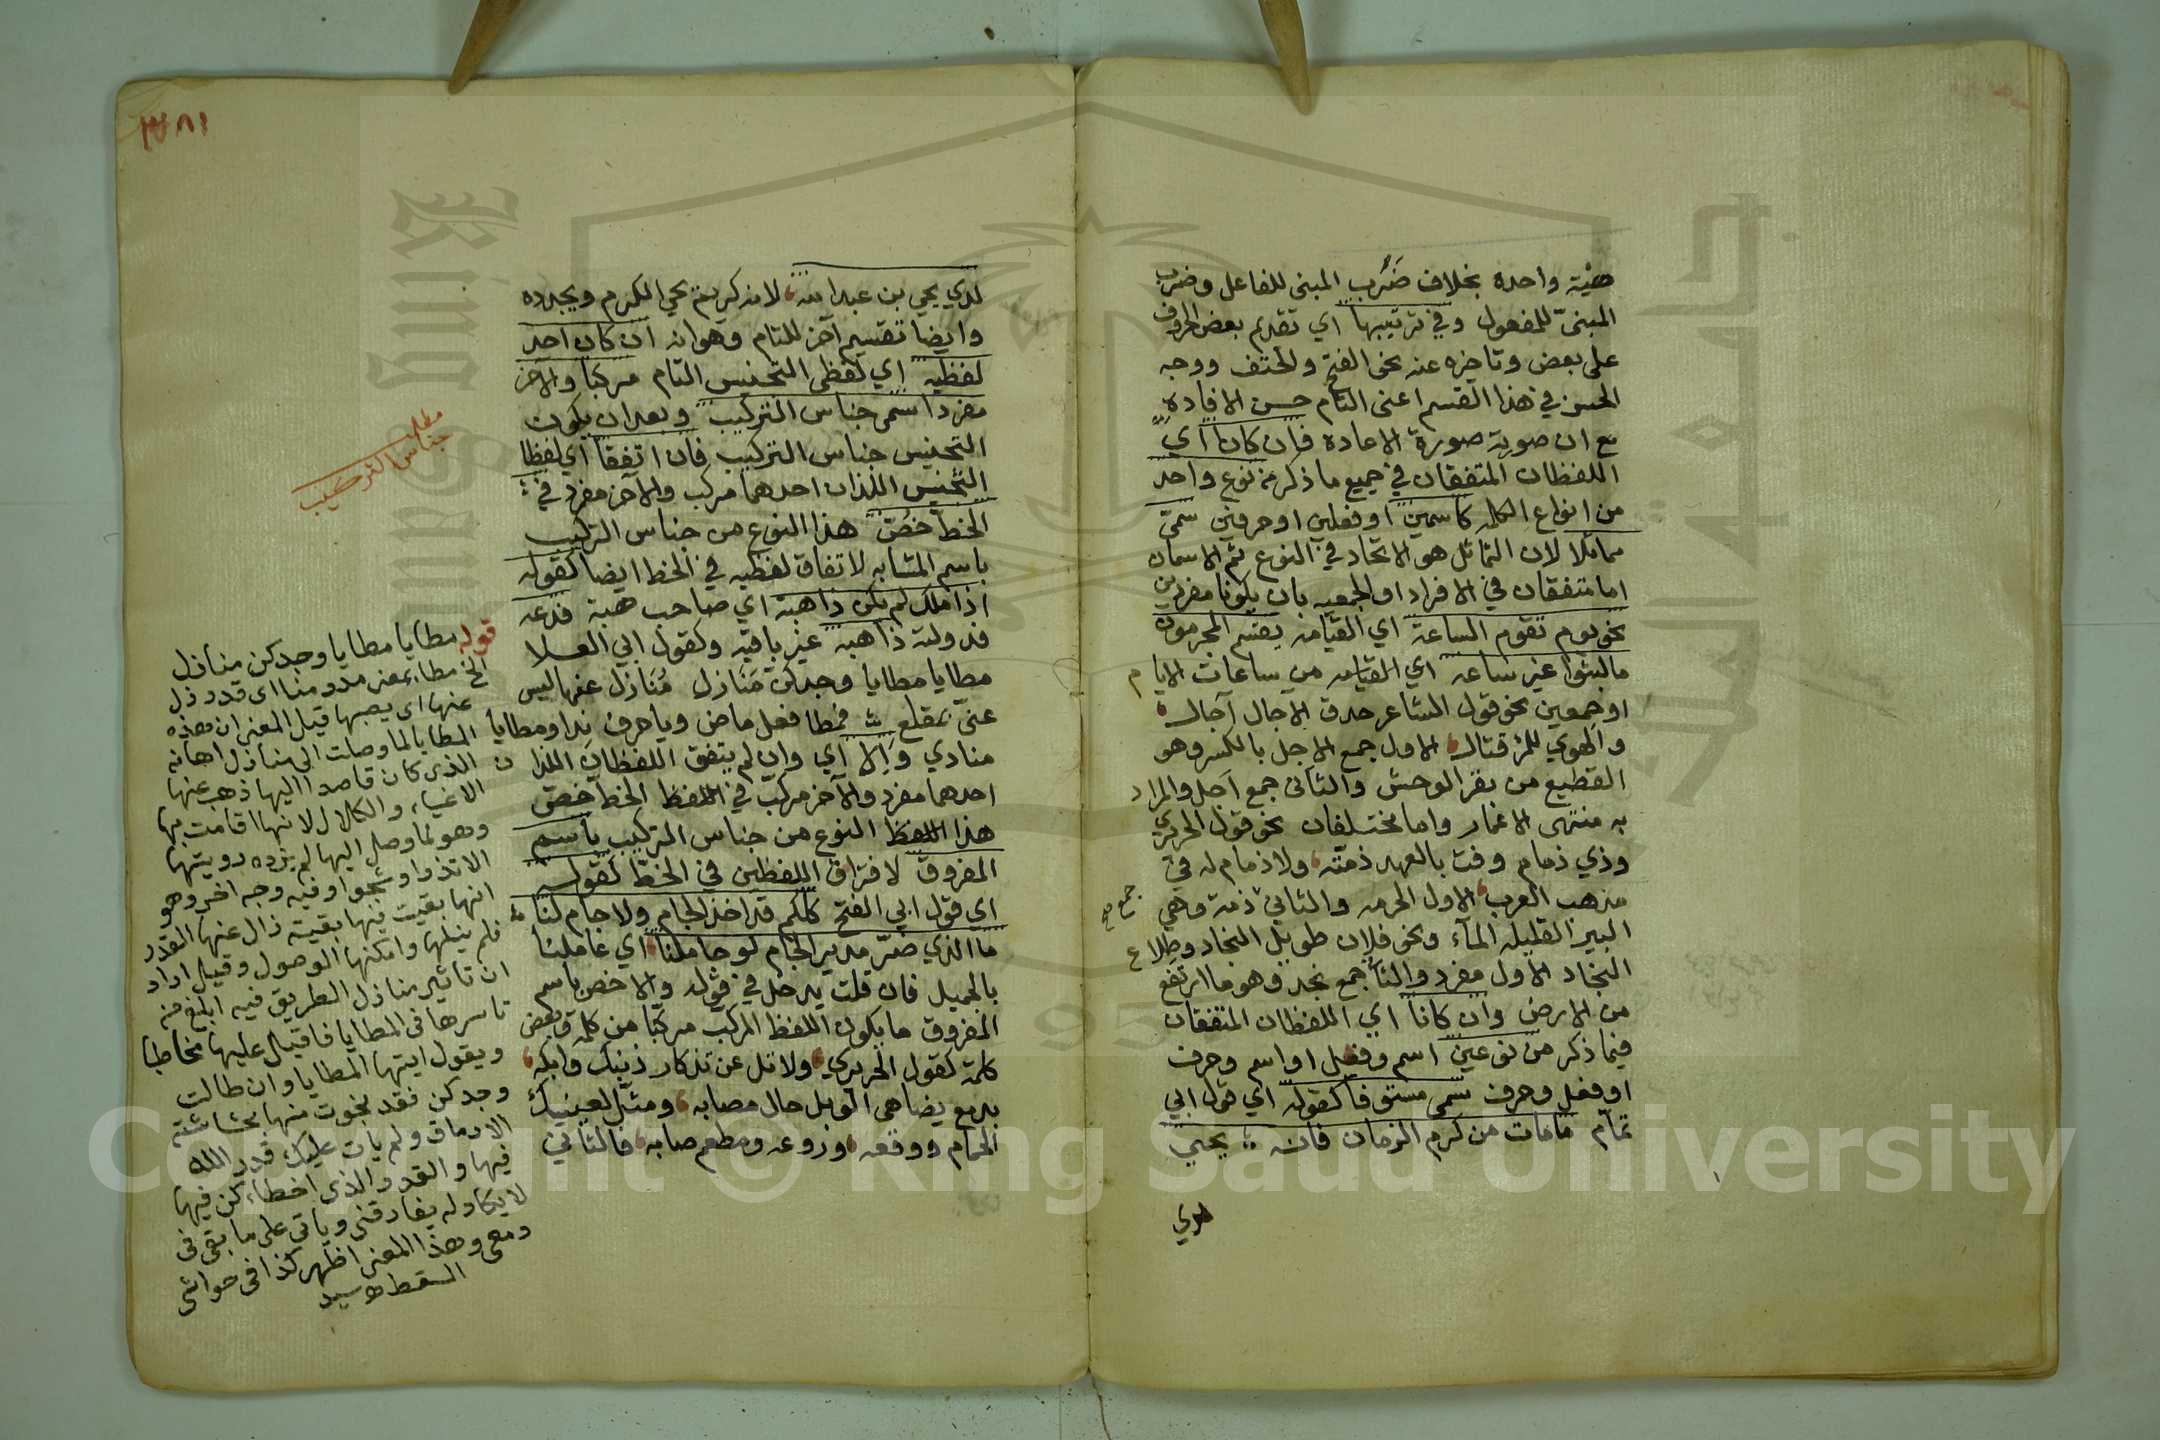 هيئة واحدة بخلاف ضَرَب المبنى للفاعل وضرب
المبنىّ للمفعول وفي ترتيبها اي تقديم بعض الحروف
على بعض وتاخره عنه نحو الفتح والحتف ووجه
الحسن في هذا القسم اعنى التام حسن الافادة
مع ان صورته صورة الاعادة فان كانا اي
اللفظان المتفقان في جميع ما ذكر من نوع واحد
من انواع الكلمة كاسمين او فعلين او حرفين سمىّ
مماثلا لان التماثل هو الاتحاد في النوع ثم الاسمان
اما متفقان في الافراد او الجمعيه بان يكونا مفردين
نحو يوم تقوم الساعة اي القيامه يقسم المجرمون
مالبثوا غير ساعه اي القيامه من ساعات الايام
او جمعين نحو قول الشاعر حدق الاجال آجال
والهوي للمرء قتال الاول جمع الاجل بالكسر وهو
القطيع من بقر الوحش والثانى جمع اَجَل والمراد
به منتهى الاعمار واما مختلفان نحو قول الحريري
وذي ذمام وفت بالعهد ذمته ولا ذمام له في
مذهب العرب الاول الحرمه والثاني ذمة وهي
جمع صح
البير القليلة المآء ونحو فلان طويل النجاد وطلاع
النجاد الاول مفرد والثا جمع نجد وهو ما ارتفع
من الارض وان كانا اي اللفظان المتفقان
فيما ذكر من نوعين اسم وفعل او اسم وحرف
او فعل وحرف سمى مستوفا كقوله اي قول ابي
تمام مامات من كرم الزمان فانه يحيى
لدي
٣٨١
لدي يحيى بن عبد الله لانه كريم يحي الكرم ويجدده
وايضا تقسيم آخر للتام وهو انه ان كان احد
لفظيه اي لفظى التجنيس التام مركبا والاخر
مفردا سمى جناس التركيب وبعد ان يكون
التجنيس جناس التركيب فان اتفقا اي لفظا
التجنيس اللذان احدهما مركب والآخر مفرد في
الخط خصّ هذا النوع من جناس التركيب
باسم المتشابه لاتفاق لفظيه في الخط ايضا كقوله
اذا ملك لم يكن ذاهبة اي صاحب هبة فدعه
فدولته ذاهبة غير باقيه وكقول ابي العلا
مطايا مطايا وجدكن مَنَازل مُنَازل عنها ليس
عنىّ بمقلع فمطا فعل ماض ويا حرف ندا ومطايا
منادي وَاِلا اي وان لم يتفق اللفظان اللذان
احدهما مفرد والآخر مركب في اللفظ الخط خصّ
هذا اللفظ النوع من جناس التركيب باسم
المفروق لافتراق اللفظين في الخط كقوله
اي قول ابي الفتح كلكم قد اخذ الجام ولا جام لنا
ما الذي ضرّ مدير الجام لو جاملنا اي عاملنا
بالجميل فان قلت يدخل في قوله والا خص باسم
المفروق ما يكون اللفظ المركب مركبا من كلمة وبعض
كلمة كقول الحريري ولا تله عن تذكار ذنبك وابكه
بدمع يضاهى الوبل حال مصابه ومثل لعينيك
الحمام ووقعه وروعه ومطعم صابه فالثاني
مطلب
جناس التركيب
قوله مطايا مطايا وجدكن منازل
الخ مطا بمعنى مد ومنا اي قدر وزل
عنها اي يصبها قيل المعنى ان هذه
المطايا لما وصلت الى منازل اهانه
الذي كان قاصدا اليها ذهب عنها
الاعياء والكلال لانها اقامت بها
وهو لما وصل اليها لم يزده رويتها
انها بقيت فيها بقيته زال عنها القدر
فلم ينلها وامكنها الوصول وقيل اراد
ان تاثير منازل الطريق فيه ابلغ من
تاسرها في المطايا فاقبال عليها مخاطبا
ويقول ايتها المطايا وان طالت
وجدكن فقد نجوت منها بحشاشة
الارماق ولم يات عليك قدر الله
فيها والقدر الذي اخطاءكن فيها
لا يكاد له يفارقنى وياتي على ما بقى في
دمعى وهذا المعنى اظهر كذا في حواشي
السقط سيد
Copyright © King Saud University